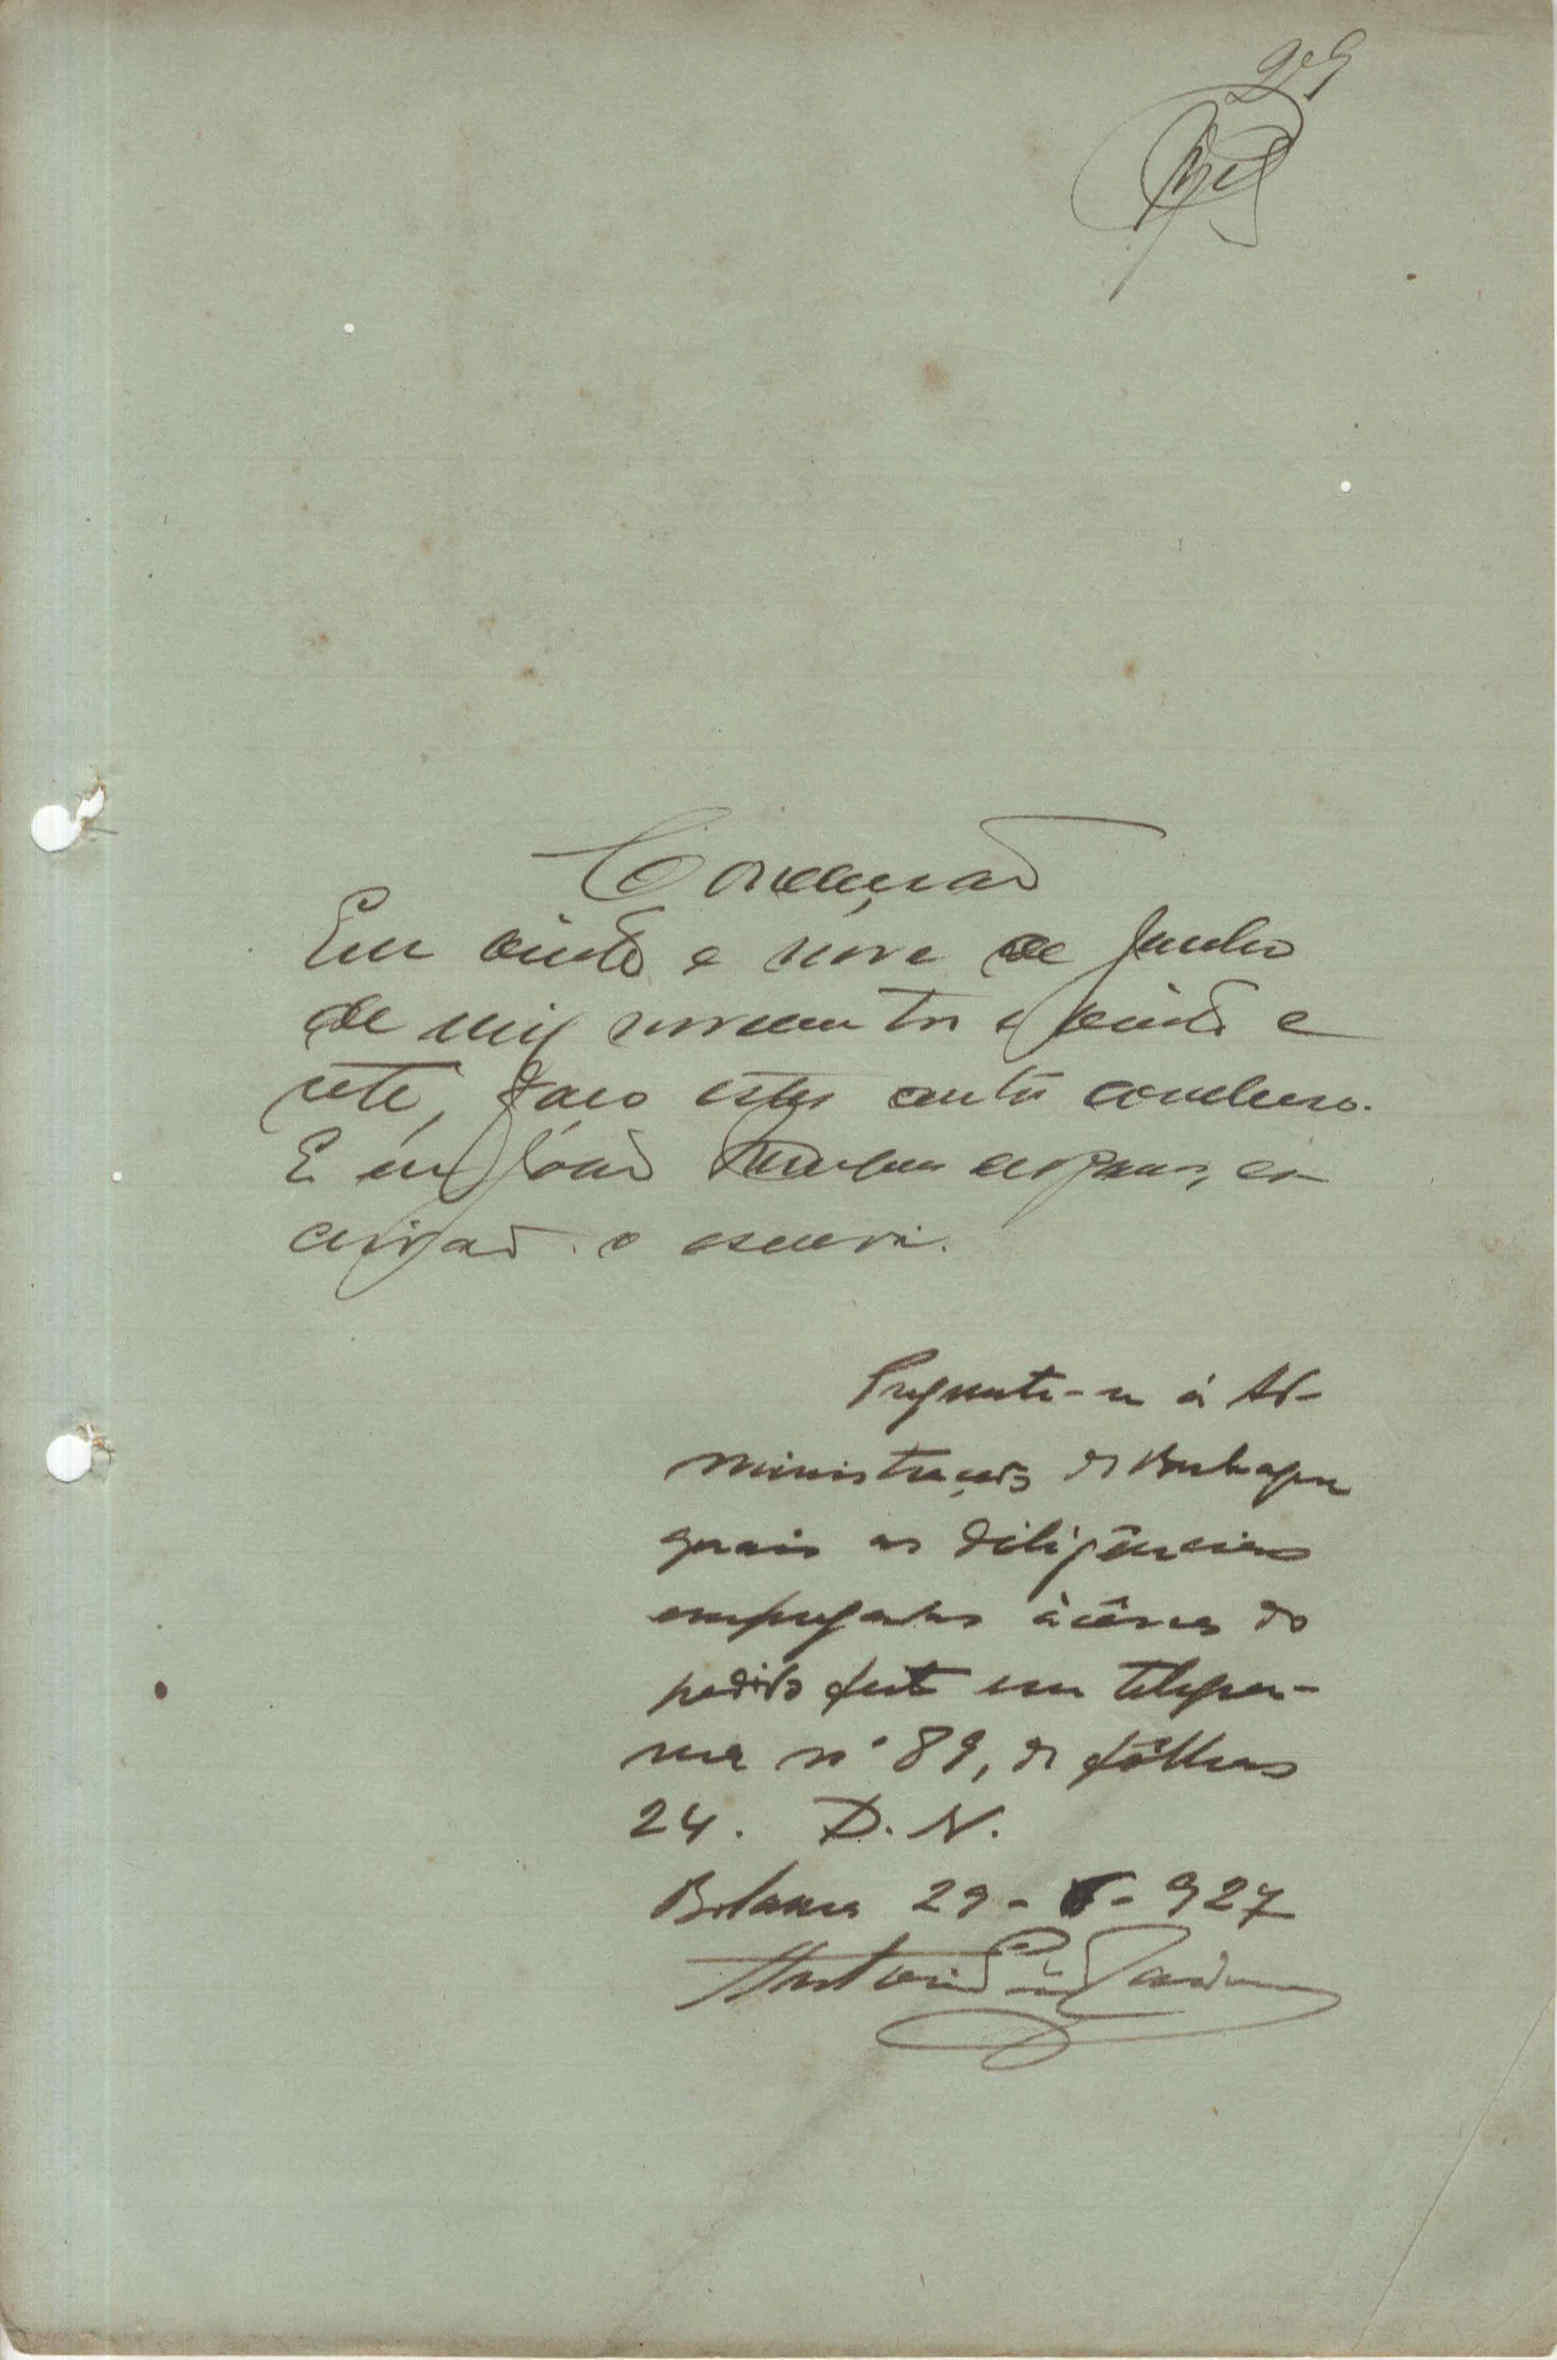 29
Conclusão
Em vinte e nove de Junho
de mil novecentos e vinte e
sete, faço estes autos conclusos.
E eu João es-
crivão o escrevi.
Pregunte-se à Ad-
ministração de
quais as diligências
empregadas àcêrca do
pedido feito em telegra-
ma nº 89, de fôlhas
24. D. N.
Bolama 29 - 6 - 927
Antonio